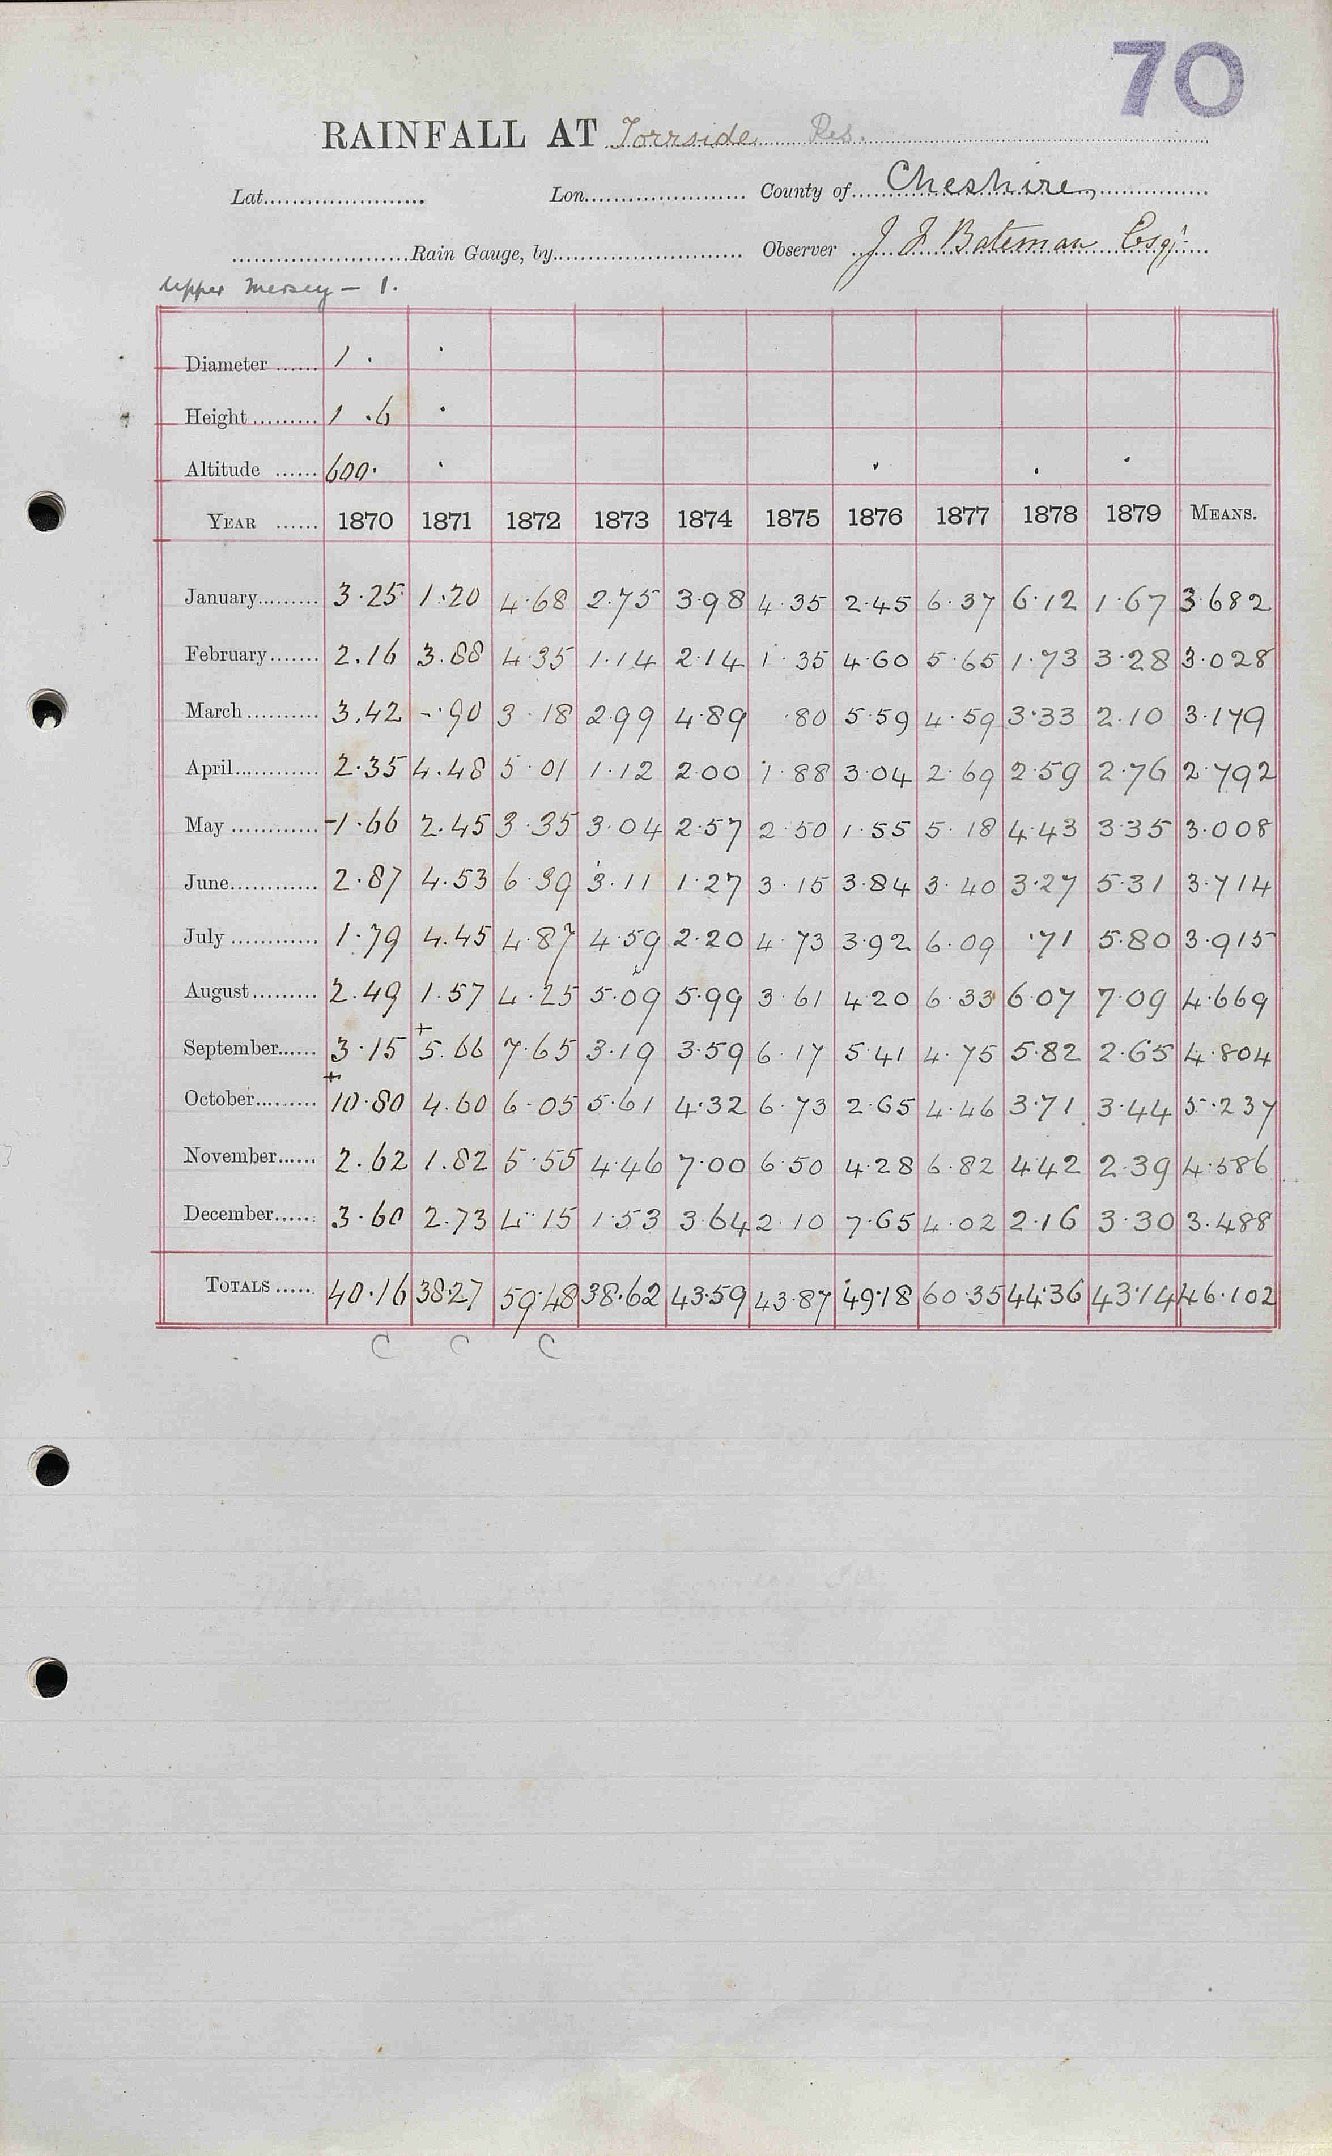 70
RAINFALL AT Torrside Res.
Lat. Lon. County of Cheshire,
Rain Gauge, by Observer J F Bateman Esqr
Upper Mersey - 1.
Diameter 1 .
Height 1 .6
Altitude 600.
YEAR 1870 1871 1872 1873 1874 1875 1876 1877 1878 1879 MEANS.
January 3.25 1.20 4.68 2.75 3.98 4.35 2.45 6.37 6.12 1.67 3.682
February 2.16 3.88 4.35 1.14 2.14 1.35 4.60 5.65 1.73 3.28 3.028
March 3.42 -.90 3.18 2.99 4.89 .80 5.59 4.59 3.33 2.10 3.179
April 2.35 4.48 5.01 1.12 2.00 1.88 3.04 2.69 2.59 2.76 2.792
May -1.66 2.45 3.35 3.04 2.57 2.50 1.55 5.18 4.43 3.35 3.008
June 2.87 4.53 6.39 3.11 1.27 3.15 3.84 3.40 3.27 5.31 3.714
July 1.79 4.45 4.87 4.59 2.20 4.73 3.92 6.09 .71 5.80 3.915
August 2.49 1.57 4.25 5.09 5.99 3.61 4.20 6.33 6.07 7.09 4.669
September 3.15 +5.66 7.65 3.19 3.59 6.17 5.41 4.75 5.82 2.65 4.804
October +10.80 4.60 6.05 5.61 4.32 6.73 2.65 4.46 3.71 3.44 5.237
November 2.62 1.82 5.55 4.46 7.00 6.50 4.28 6.82 4.42 2.39 4.586
December 3.60 2.73 4.15 1.53 3.64 2.10 7.65 4.02 2.16 3.30 3.488
TOTALS 40.16 38.27 59.48 38.62 43.59 43.87 49.18 60.35 44.36 43.14 46.102
C C C